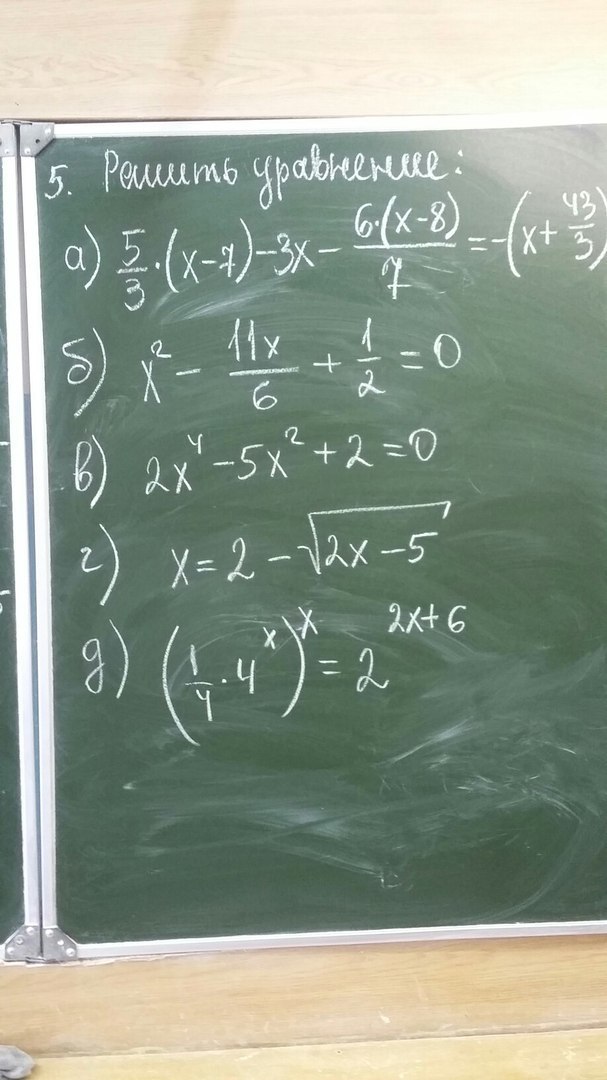 5. Решить уравнение:
а) 5/3 · (x-7) - 3x - 6·(x-8)/7 = -(x + 43/3)
б) x² - 11x/6 + 1/2 = 0
в) 2x⁴ - 5x² + 2 = 0
г) x = 2 - √(2x - 5)
д) (1/4 · 4^x)^x = 2^(2x+6)